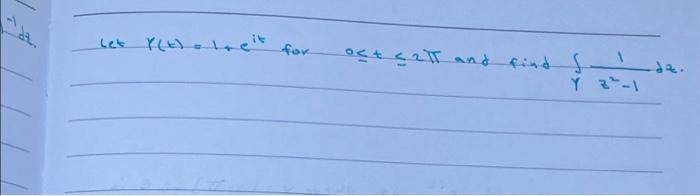 -1 dz.
Let γ(t) = 1 + e^{it} for 0 ≤ t ≤ 2π and find ∫_γ 1/(z²-1) dz.